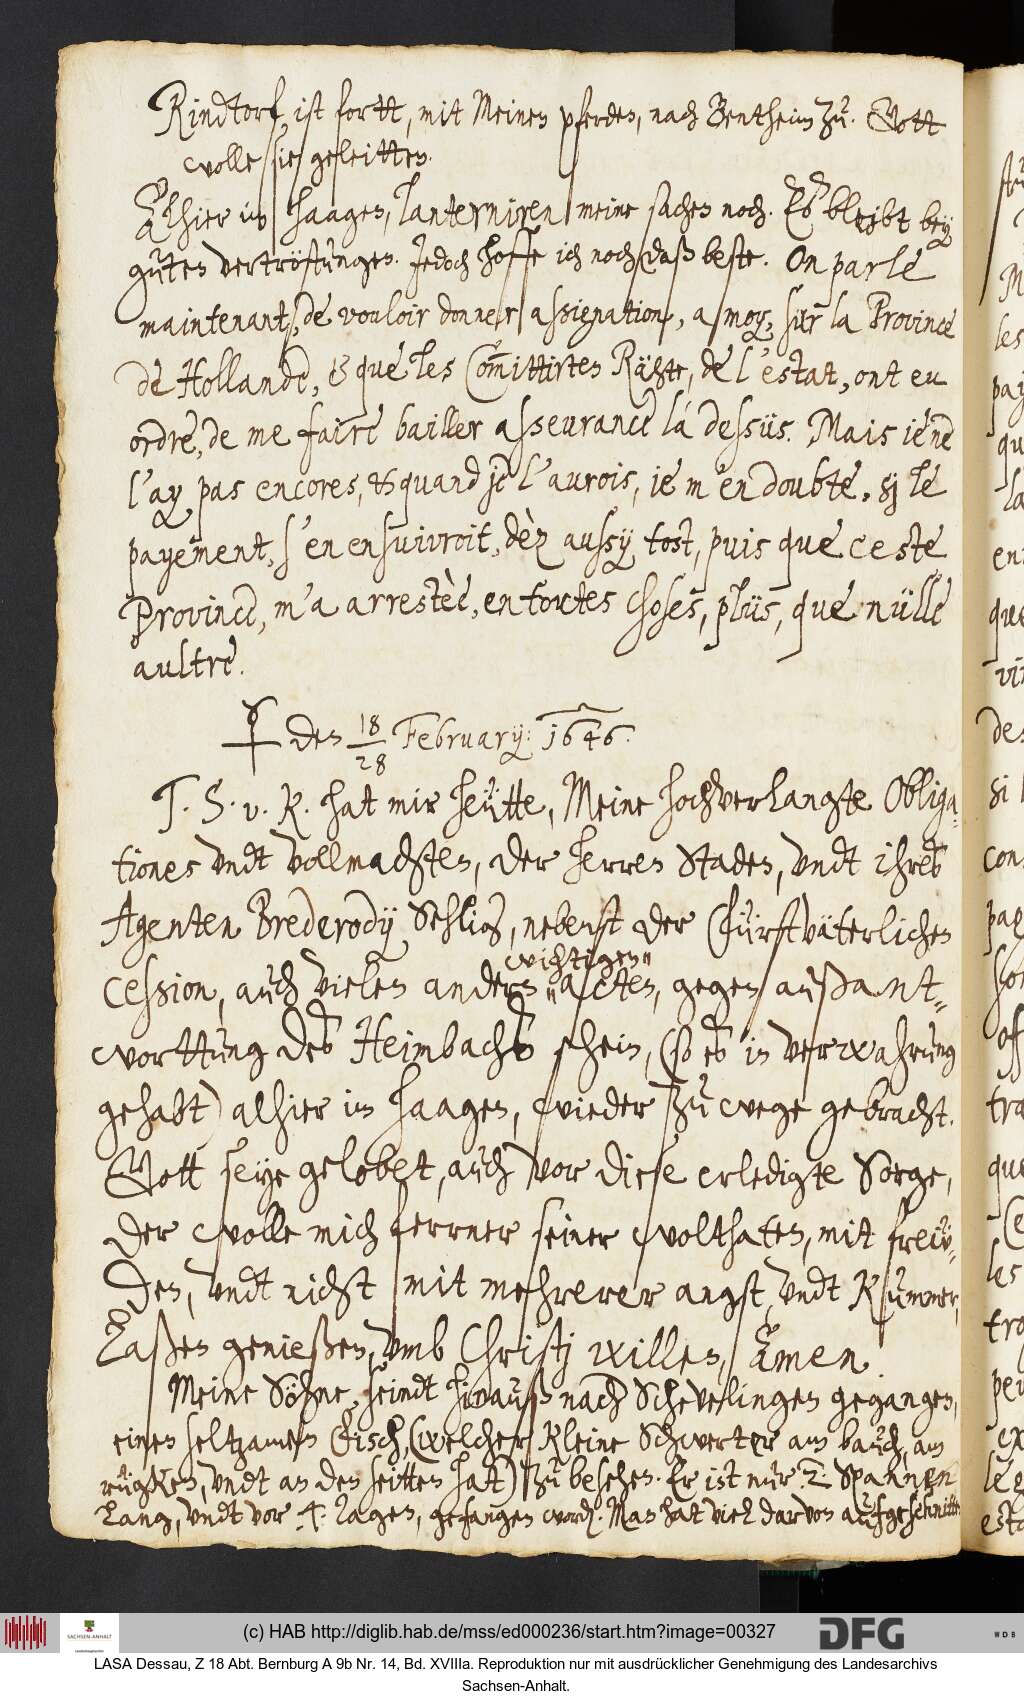 Rindtorf, ist fortt, mit Meinen pferden, nach Bentheim zu. Gott
wolle sie geleitten.
Alhier im Haagen, lanterniren meine sachen noch. Es bleibt bey
guten vertröstungen. Jedoch hoffe ich noch daß beste. On parle
maintenant, de vouloir donner assignation, a moy, sur la Province
de Hollande, & que les Com̅ittirten Rähte, de l'estat, ont eu
ordre, de me faire bailler asseurance là dessus. Mais je ne
l'ay pas encores, & quand je l'aurois, je m'en doubte, sj le
payement, s'en ensuivroit, dèz aussy tost, puis que ceste
Province, m'a arrestèe, en toutes choses, plüs, que nülle
aultre.
♄ den 18/28 February: 1646.
T. S. v. R. hat mir heütte, Meine hochverlangte Obliga-
tiones vndt vollmachten, der Herren Staden, vndt ihres
Agenten Brederodij Sehlig, nebenst der Fürstväterlichen
cession, auch vielen andern wichtigen acten, gegen außant-
worttung des Heimbachs schein, (so es in verwahrung
gehabt) alhier im Haagen, wieder zu wege gebracht.
Gott seye gelobet, auch vor diese erledigte Sorge,
der wolle mich ferrner seiner wolthaten, mit freu-
den, vndt nicht mit mehrerer angst, vndt Kummer,
Laßen genießen, vmb Christj willen, Amen.
Meine Söhne, seindt hinauß nach Schevelingen gegangen,
einen seltzamen Fisch, (welcher kleine Schwerter am bauch, am
rügken, vndt an den seitten hat) zu besehen. Er ist nur 2. Spannen
Lang, vndt vor 4. Tagen, gefangen word. Man hat viel darvon aufgeschnitte
(c) HAB http://diglib.hab.de/mss/ed000236/start.htm?image=00327
SACHSEN-ANHALT
DFG
WDB
LASA Dessau, Z 18 Abt. Bernburg A 9b Nr. 14, Bd. XVIIIa. Reproduktion nur mit ausdrücklicher Genehmigung des Landesarchivs
Sachsen-Anhalt.